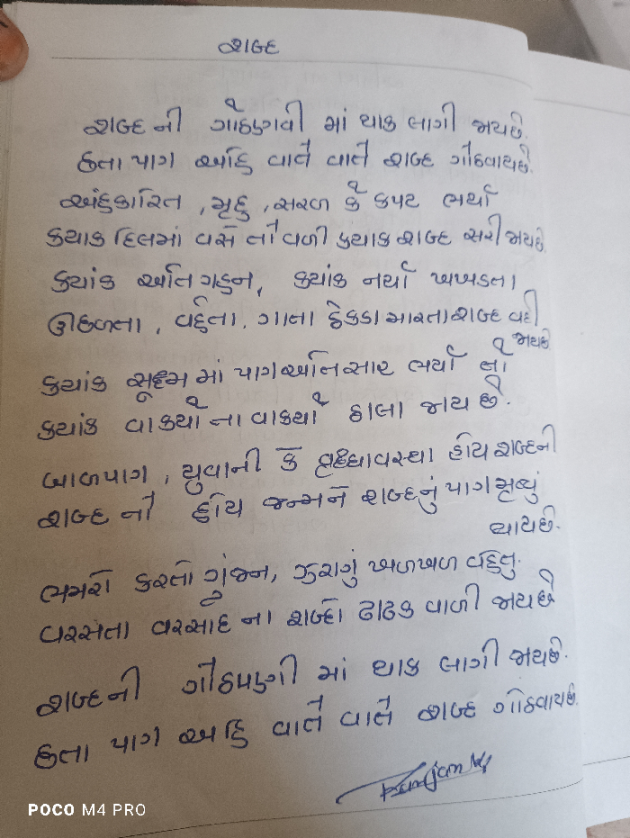 શબ્દ
શબ્દ ની ગોઠણવી માં થાક લાગી જાયછે
છતા પાગ અહિ વાતે વાતે શબ્દ ગોઠવાયછે.
અહંકારિત, મૃદુ, સરળ કે કપટ ભર્યા
કયાક દિલમાં વસે તો વળી કયાક શબ્દ સરી જાયછે
કયાંક અતિ ગહન, કયાંક નર્યા ખખડતા
ઊછળતા, વહેતા. ગાતા ઠેકડા મારતા શબ્દ વહી
જાયછે
કયાંક સૂક્ષ્મ માં પાગ અતિ સાર ભર્યા તો
કયાંક વાકયો ના વાકયો ઠાલા જાય છે.
બાળપાગ, યુવાની કે વૃધ્ધાવસ્થા હોય શબ્દની
શબ્દ નો હોય જન્મને શબ્દનું પાગ મૃત્યુ
થાયછે.
ભમરો કરતો ગુંજન, ઝરાગું ખળખળ વહેતુ.
વરસતા વરસાદ ના શબ્દો ઢાઢક વાળી જાય છે
શબ્દ ની ગોઠપણી માં થાક લાગી જાયછે.
છતા પાગ અહિ વાતે વાતે શબ્દ ગોઠવાયછે.
POCO M4 PRO